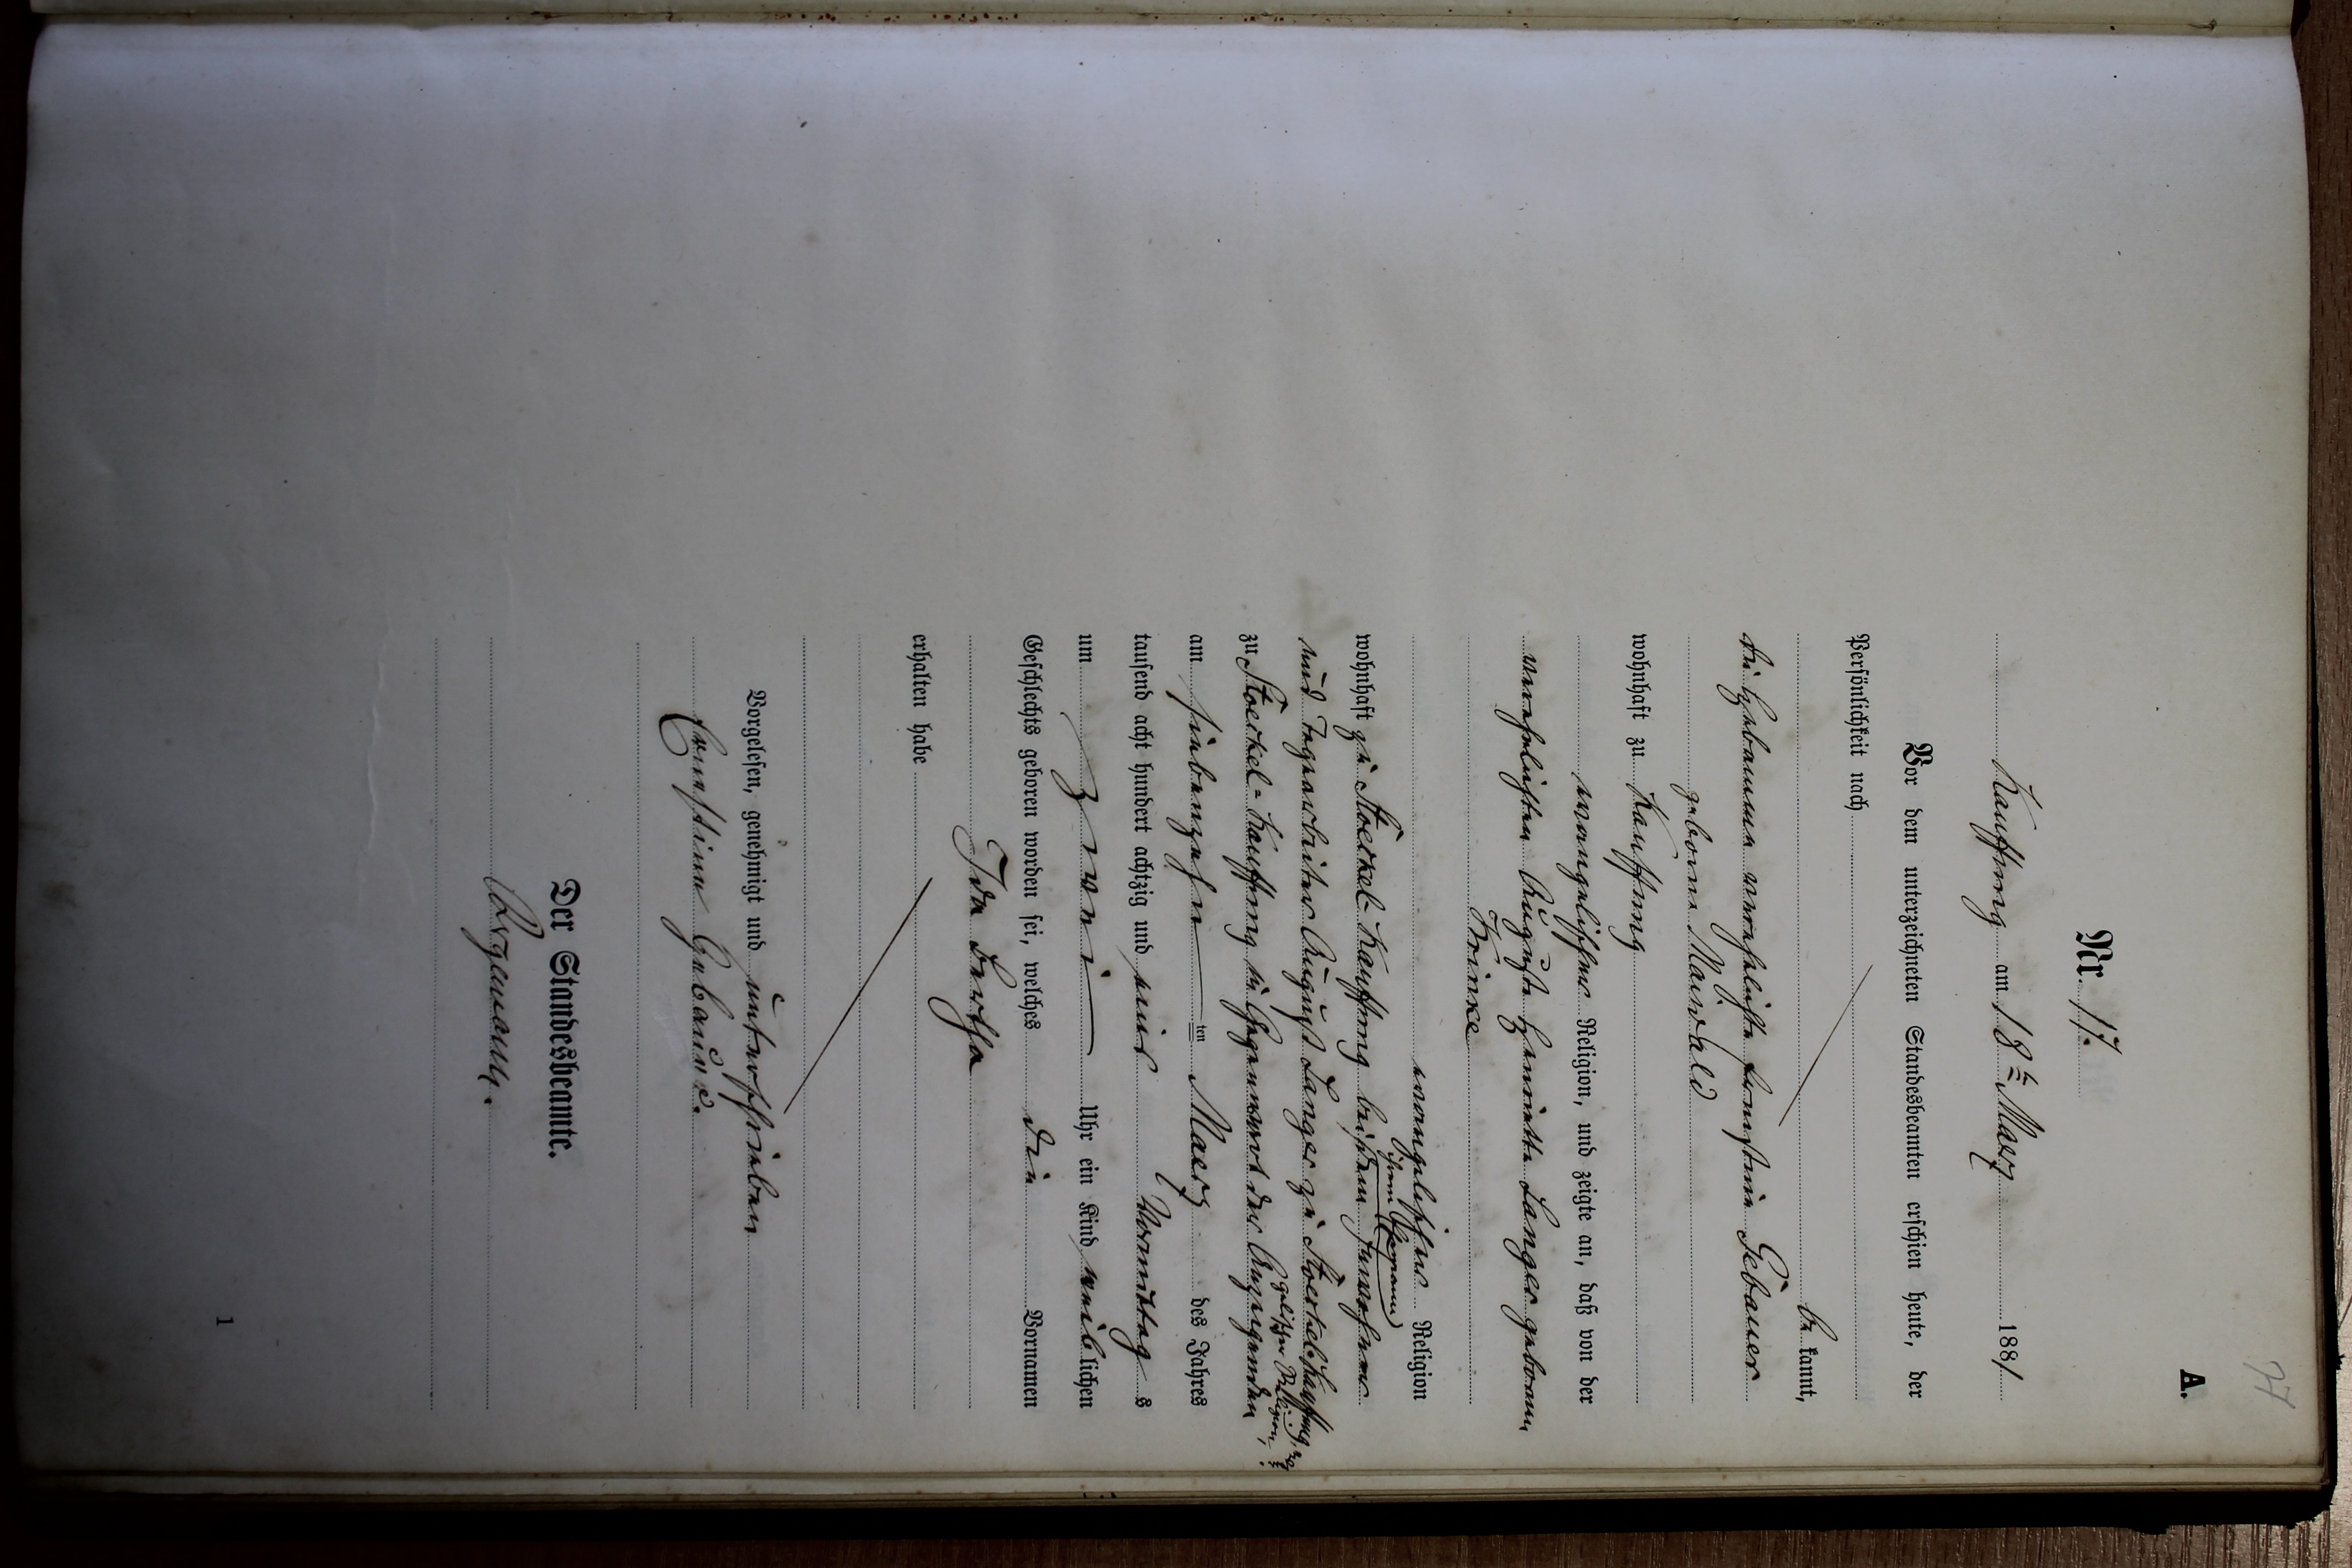 A.
Nr. 17.
Kauffung am 18ten Maerz 1881
Vor dem unterzeichneten Standesbeamten erschien heute, der
Persönlichkeit nach
be kannt,
die Hebamme verehelichte Ernestine Gebauer
geborne Maiwald
wohnhaft zu Kauffung
evangelischer Religion, und zeigte an, daß von der
verehelichten Auguste Henriette Langer geborenen
Krinke
evangelischer Religion
wohnhaft zu Stoeckel-Kauffung bei ihrem Ehemann
und Tagearbeiter August Langer zu Stoeckel-Kauffung, evan-
gelischer Religion,
zu Stoeckel-Kauffung in Gegenwart der Anzeigenden
am siebenzehnten Maerz des Jahres
tausend acht hundert achtzig und eins Vormittags
um zwei Uhr ein Kind weiblichen
Geschlechts geboren worden sei, welches die Vornamen
Ida Bertha
erhalten habe
Vorgelesen, genehmigt und unterschrieben
Ernestine Gebauer.
Der Standesbeamte.
1